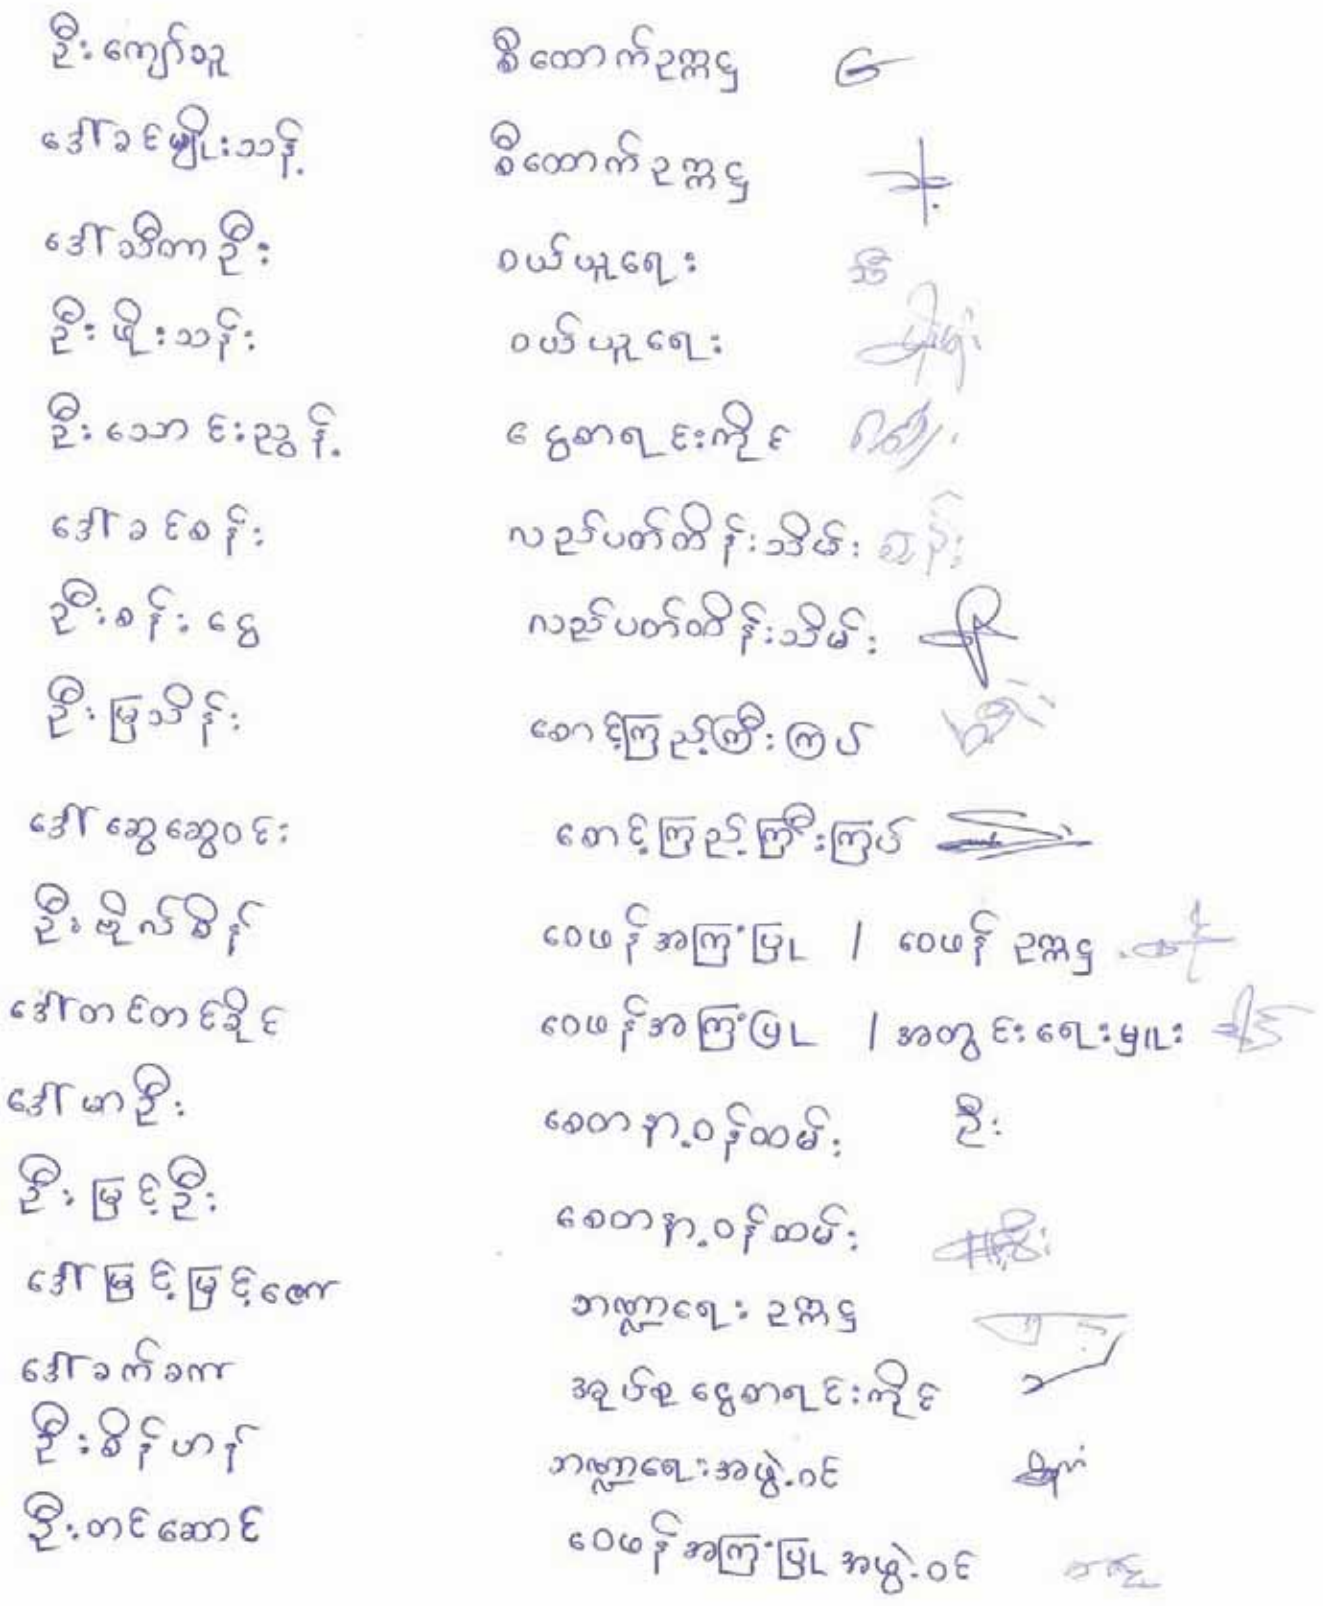 ဦးကျော်သူ စီထောက်ဥက္ကဋ္ဌ
ဒေါ်ခင်မျိုးသန့် စီထောက်ဥက္ကဋ္ဌ
ဒေါ်သီတာဦး ဝယ်ယူရေး သီ
ဦးဖိုးသန်း ဝယ်ယူရေး
ဦးသောင်းညွန့် ငွေစာရင်းကိုင်
ဒေါ်ခင်စန်း လည်ပတ်ထိန်းသိမ်း စန်း
ဦးစန်းငွေ လည်ပတ်ထိန်းသိမ်း
ဦးမြသိန်း စောင့်ကြည့်ကြီးကြပ်
ဒေါ်ဆွေဆွေဝင်း စောင့်ကြည့်ကြီးကြပ်
ဦးဗိုလ်စိန် ဝေဖန်အကြံပြု / ဝေဖန် ဥက္ကဋ္ဌ
ဒေါ်တင်တင်ခိုင် ဝေဖန်အကြံပြု / အတွင်းရေးမှူး
ဒေါ်မာဦး စေတနာ့ဝန်ထမ်း ဦး
ဦးမြင့်ဦး စေတနာ့ဝန်ထမ်း
ဒေါ်မြင့်မြင့်ဇော ဘဏ္ဍာရေး ဥက္ကဋ္ဌ
ဒေါ်ခက်ခက အုပ်စုငွေစာရင်းကိုင်
ဦးစိန်ဟန် ဘဏ္ဍာရေးအဖွဲ့ဝင်
ဦးတင်ဆောင် ဝေဖန်အကြံပြုအဖွဲ့ဝင်